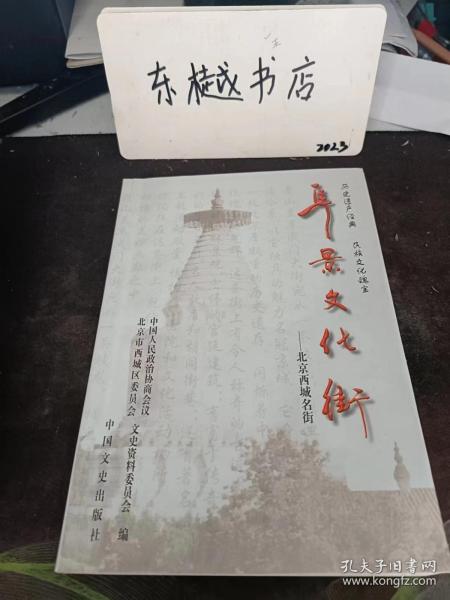 东樾书店
2023
历史遗产经典 民族文化瑰宝
阜景文化街
——北京西城名街
中国人民政治协商会议
北京市西城区委员会 文史资料委员会 编
中国文史出版社
孔夫子旧书网
www.kongfz.com